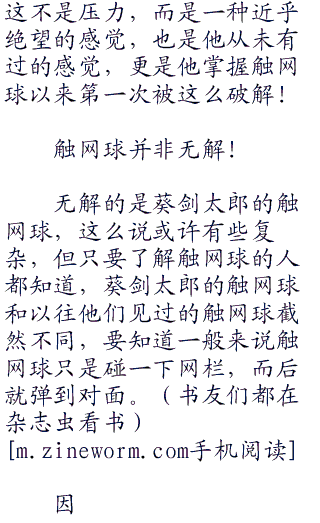 这不是压力，而是一种近乎
绝望的感觉，也是他从未有
过的感觉，更是他掌握触网
球以来第一次被这么破解！
触网球并非无解！
无解的是葵剑太郎的触
网球，这么说或许有些复
杂，但只要了解触网球的人
都知道，葵剑太郎的触网球
和以往他们见过的触网球截
然不同，要知道一般来说触
网球只是碰一下网栏，而后
就弹到对面。（书友们都在
杂志虫看书）
[m.zineworm.com手机阅读]
因